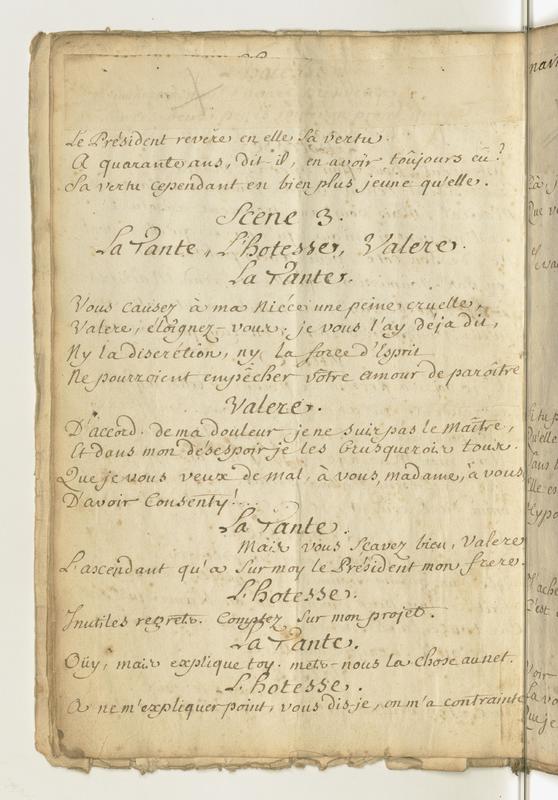 Le Président revére en elle sa vertu.
A quarante ans, dit-il, en avoir toûjours eû?
Sa vertu cependant en bien plus jeune qu'elle.
Scene 3.
La Tante, L'hotesse, Valere.
La Tante.
Vous causez à ma Niéce une peine cruelle,
Valere, éloîgnez-vous; je vous l'ay déja dit,
Ny la discrétion, ny la force d'Esprit
Ne pourroient empêcher vôtre amour de parôitre
Valere.
D'accord. de ma douleur je ne suis pas le Maître,
Et dans mon désespoir je les brusquerois tous.
Que je vous veux de mal, à vous, madame, à vous
D'avoir Consenty!...
La Tante.
Mais vous sçavez bien, Valere
L'ascendant qu'a sur moy le Président mon frere.
L'hotesse.
Inutiles regrets. Comptez sur mon projet.
La Tante.
Oüy, mais explique toy. mets-nous la chose au net.
L'hotesse.
A ne m'expliquer point, vous dis-je, on m'a contrainte